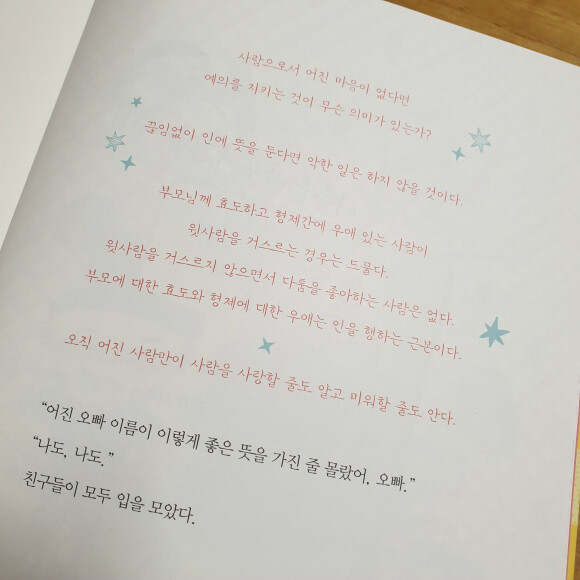 사람으로서 어진 마음이 없다면
예의를 지키는 것이 무슨 의미가 있는가?
끊임없이 인에 뜻을 둔다면 악한 일은 하지 않을 것이다.
부모님께 효도하고 형제간에 우애 있는 사람이
윗사람을 거스르는 경우는 드물다.
윗사람을 거스르지 않으면서 다툼을 좋아하는 사람은 없다.
부모에 대한 효도와 형제에 대한 우애는 인을 행하는 근본이다.
오직 어진 사람만이 사람을 사랑할 줄도 알고 미워할 줄도 안다.
“어진 오빠 이름이 이렇게 좋은 뜻을 가진 줄 몰랐어, 오빠.”
“나도, 나도.”
친구들이 모두 입을 모았다.